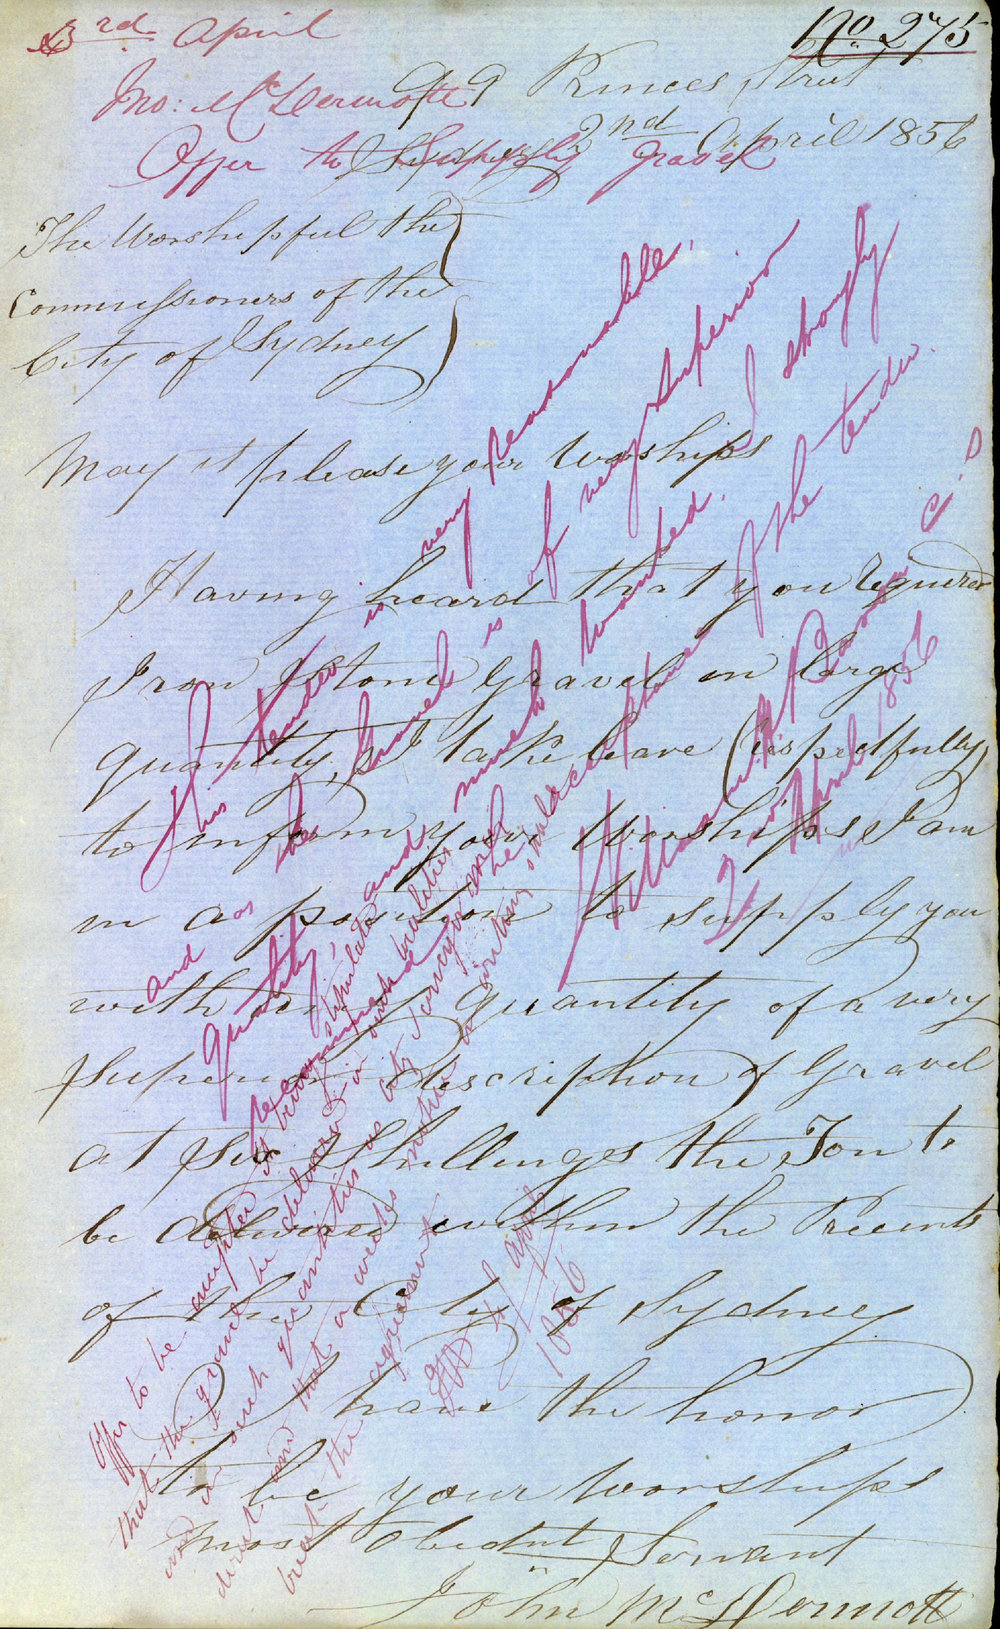 No. 275
3rd April
Jno: McDermott
Offer to Supply gravel
99 Princes Street
Sydney 2nd April 1856
The Worshipful the
Commissioners of the
City of Sydney
May it please your Worships
Having heard that you required
Iron Stone Gravel in large
quantity, I take leave (respectfully)
to inform your Worships I am
in a position to supply you
with any quantity of a very
Superior description of Gravel
at Six Shillings the Ton to
be delivered within the Precints
of the City of Sydney
I have the honor
to be your Worships
most Obednt Servant
John McDermott
This tender is very reasonable,
and as the Gravel is of very superior
quality, and much wanted. I strongly
recommend the acceptance of the tender.
3 April 1856
Offer to be accepted it being stipulated
that the gravel be delivered in such localities
and in such quantities as City Surveyor may
direct and that a weeks notice in writing shall
the agreement
April
1856